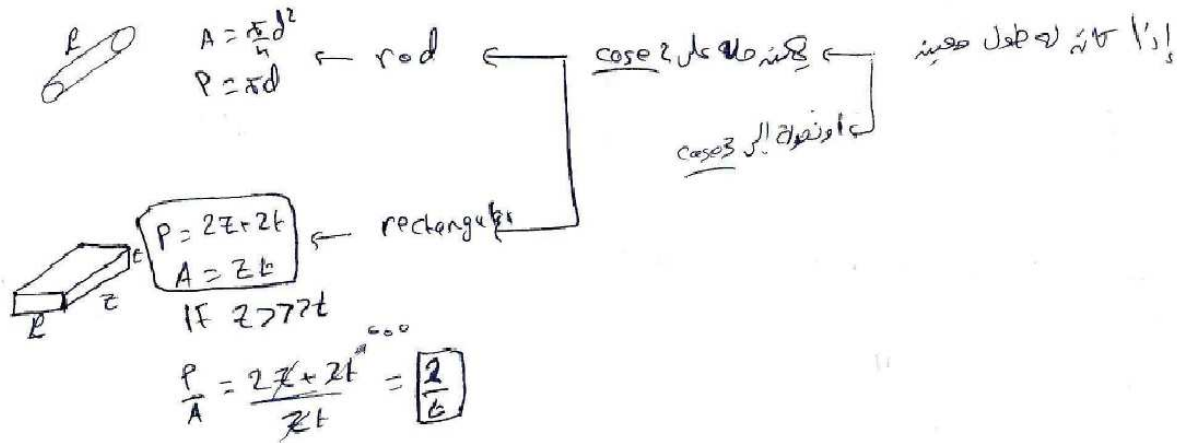 إذا كانه له طول معين ← يمكنه حله على case 2 ← rod ← A = π/4 d²
P = πd
L
او نحوله إلى case3
rectangular ← P = 2Z+2t
A = Zt
t
Z
L
IF Z>>>t
P/A = 2Z+2t/Zt = 2/t